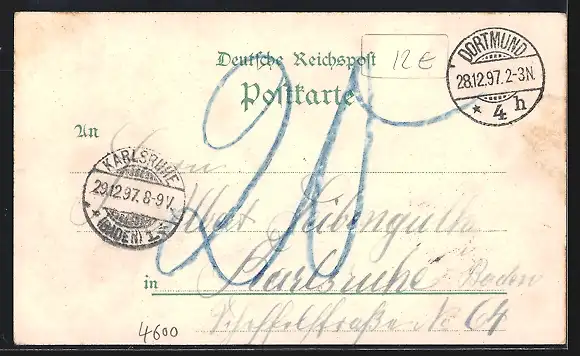 Deutsche Reichspost
Postkarte
12 €
DORTMUND
28.12.97. 2-3N.
* 4 h
An
Herrn
KARLSRUHE
29.12.97. 8-9V.
* (BADEN) 1. *
20
in Karlsruhe i Baden
Scheffelstraße No 64
4600